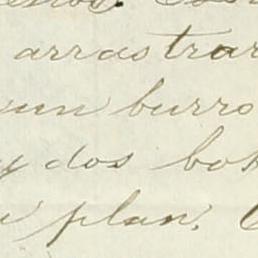 arrastrar
un burro
y dos bot
plan.